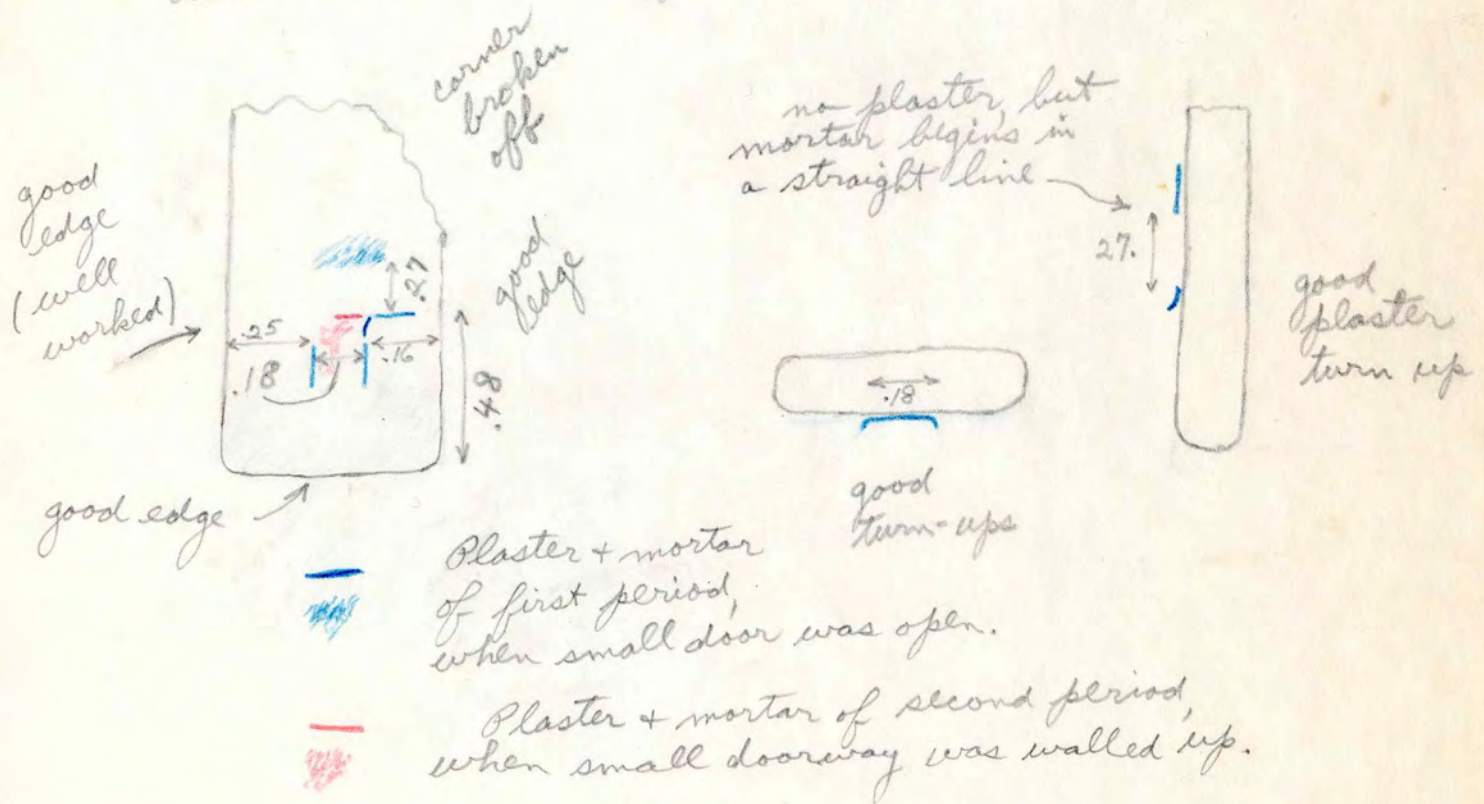 corner
broken
off
good
edge
(well
worked)
good
edge
.27
.25
.16
.18
.48
good edge
no plaster, but
mortar begins in
a straight line
27.
good
plaster
turn up
.18
good
turn-ups
Plaster + mortar
of first period,
when small door was open.
Plaster + mortar of second period,
when small doorway was walled up.